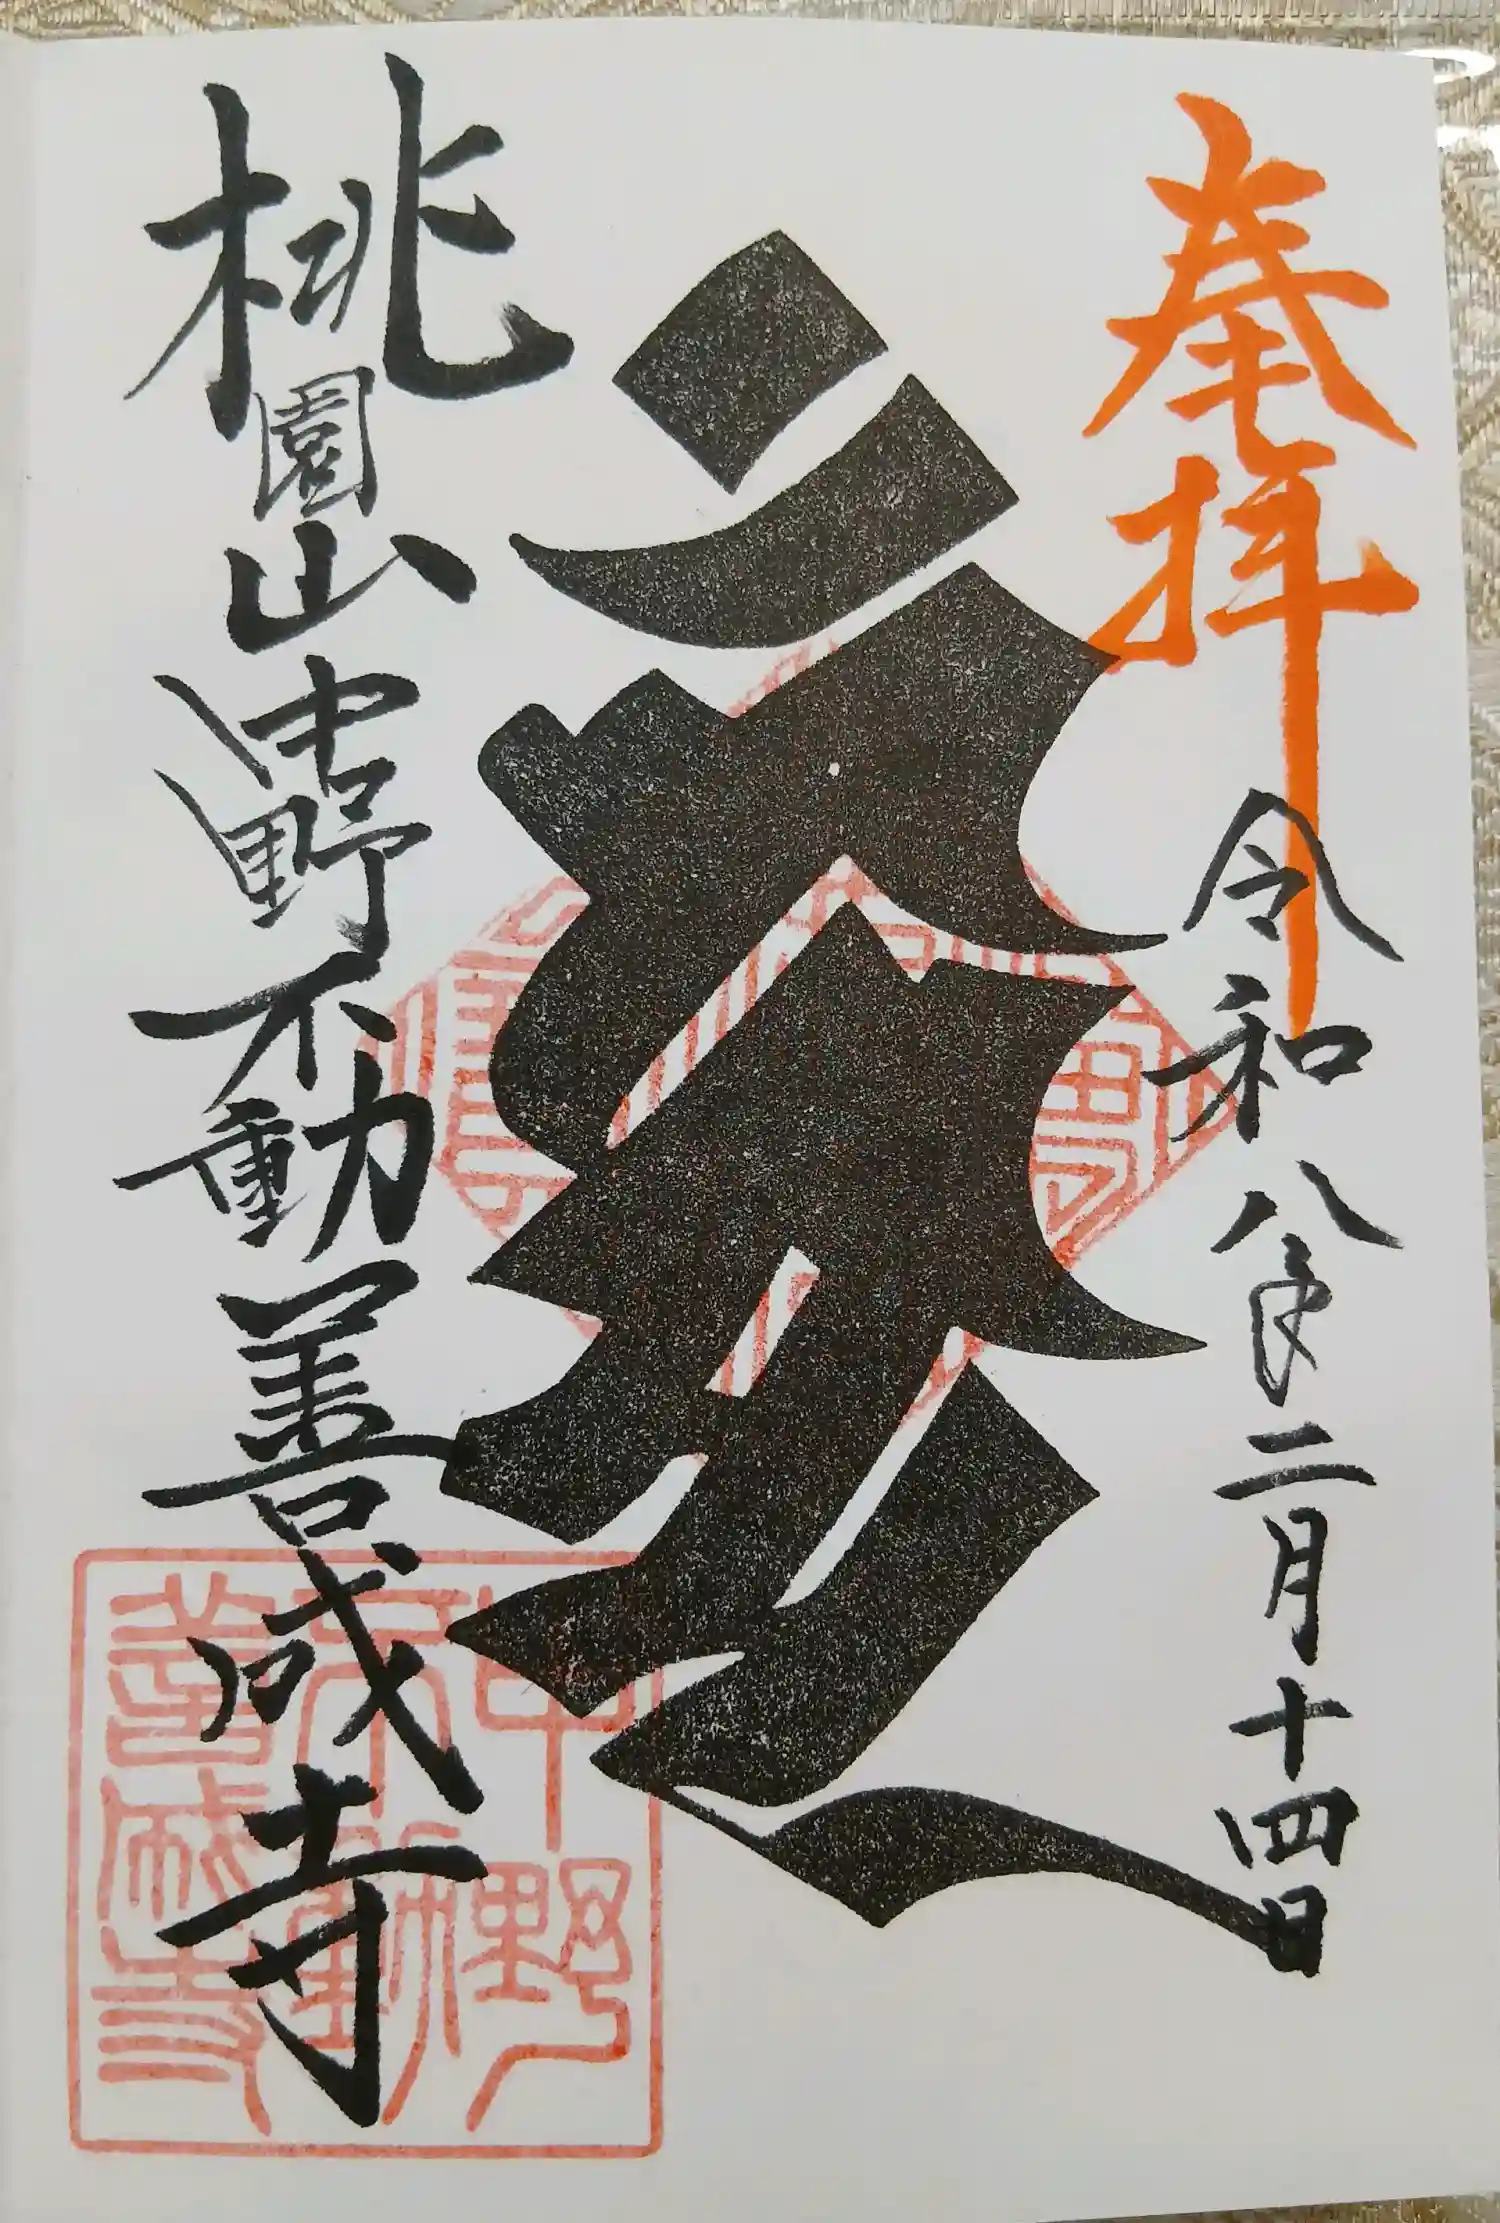 奉拝
令和八年二月十四日
桃園山中野不動善成寺
中野
不動
善成寺